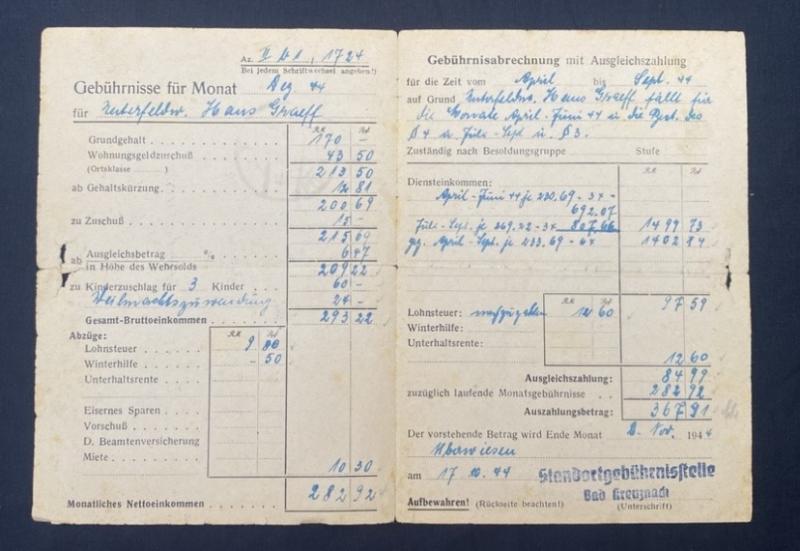 Az. II b 1, 1724
Bei jedem Schriftwechsel angeben!)
Gebührnisse für Monat Dez 44
für Unterfeldw. Hans Graeff
RM Rpf
Grundgehalt 170 –
Wohnungsgeldzuschuß 43 50
(Ortsklasse ........)
213 50
ab Gehaltskürzung 12 81
200 69
zu Zuschuß 15 –
215 69
ab Ausgleichsbetrag %
in Höhe des Wehrsolds 6 47
209 22
zu Kinderzuschlag für 3 Kinder 60 –
Weihnachtszuwendung 24 –
Gesamt-Bruttoeinkommen 293 22
Abzüge: RM Rpf
Lohnsteuer 9 80
Winterhilfe – 50
Unterhaltsrente
Eisernes Sparen
Vorschuß
D. Beamtenversicherung
Miete
10 30
Monatliches Nettoeinkommen 282 92
Gebührnisabrechnung mit Ausgleichszahlung
für die Zeit vom April bis Sept. 44
auf Grund Unterfeldw. Hans Graeff fällt für
die Monate April - Juni 44 u. die Best. des
§ 4 a Juli - Sept u. § 3.
Zuständig nach Besoldungsgruppe Stufe
RM Rpf
Diensteinkommen:
April - Juni 44 je 230.69 - 3x
692.07
Juli - Sept. je 269.22 - 3x 807.66 1499 73
gz. April - Sept. je 233.69 - 6x 1402 14
RM Rpf
97 59
Lohnsteuer: nachzuzahlen 12 60
Winterhilfe:
Unterhaltsrente:
12 60
Ausgleichszahlung: 84 99
zuzüglich laufende Monatsgebührnisse 282 92
Auszahlungsbetrag: 367 91
Der vorstehende Betrag wird Ende Monat Nov. 1944
überwiesen
am 17 10. 44
Standortgebührnisstelle
Bad Kreuznach
Aufbewahren! (Rückseite beachten!) (Unterschrift)